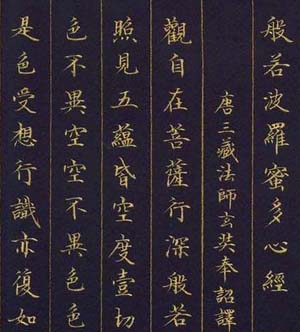 般若波羅蜜多心經
唐三藏法師玄奘奉詔譯
觀自在菩薩行深般若
照見五蘊皆空度壹切
色不異空空不異色色
是色受想行識亦復如